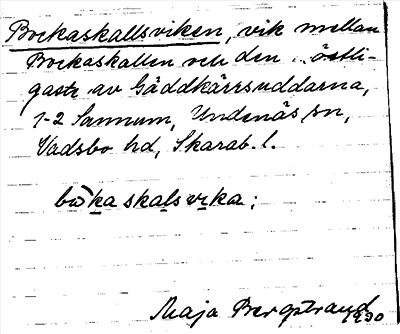 Bockaskallsviken, vik mellan
Bockaskallen och den östli-
gaste av Gäddkärrsuddarna,
1-2 Sannum, Undenäs sn,
Vadsbo hd, Skarab. l.
bo̊kaskalsvika;
Maja Bergstrand
1930